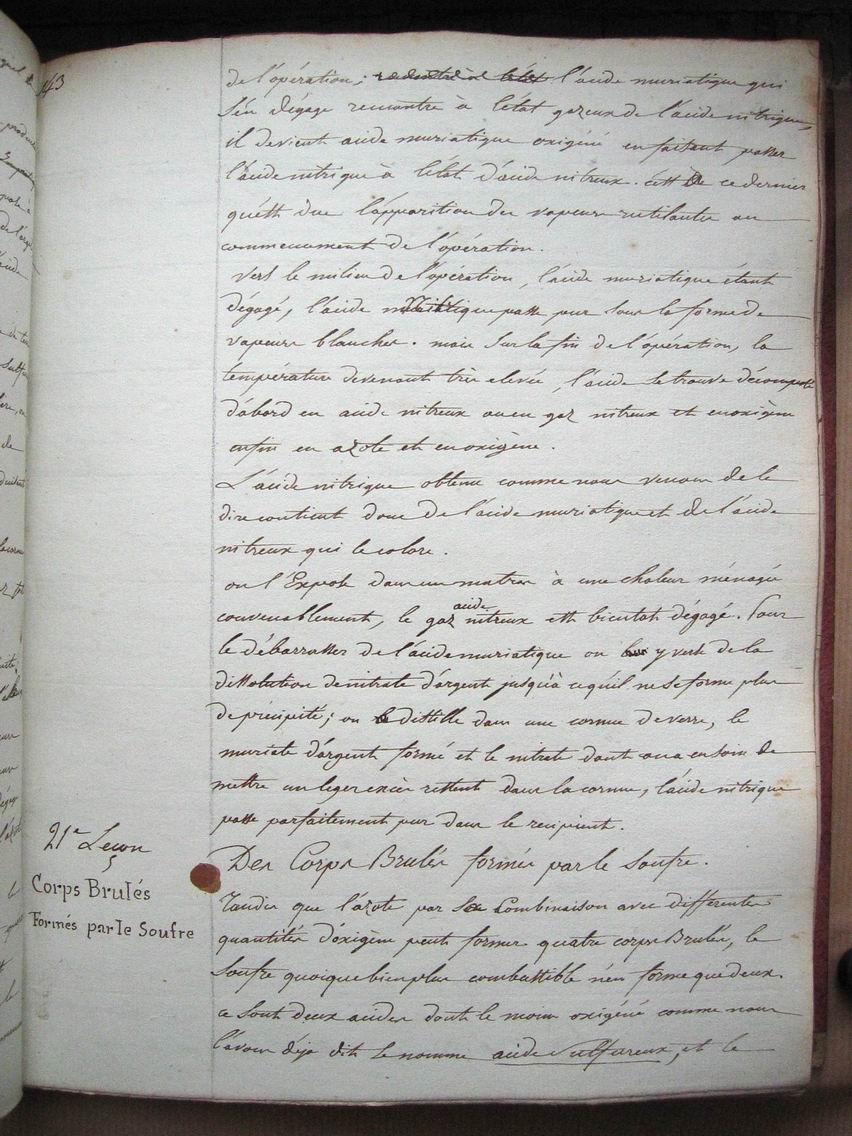 143
de l'opération; l'acide muriatique qui
s'en dégage rencontre à l'état gazeux de l'acide nitrique,
il devient acide muriatique oxigéné en faisant passer
l'acide nitrique à l'état d'acide nitreux. c'est à ce dernier
qu'est due l'apparition des vapeurs rutilantes au
commencement de l'opération.
vers le milieu de l'opération, l'acide muriatique étant
dégagé, l'acide nitrique passe pur sous la forme de
vapeurs blanches. mais sur la fin de l'opération, la
température devenant très elevée, l'acide se trouve décomposé
d'abord en acide nitreux ou en gaz nitreux et en oxigène
enfin en azote et en oxigène.
L'acide nitrique obtenu comme nous venons de le
dire contient donc de l'acide muriatique et de l'acide
nitreux qui le colore.
on l'Expose dans un matras à une chaleur ménagée
convenablement, le gaz acide nitreux est bientôt dégagé. Pour
le débarrasser de l'acide muriatique on y verse de la
dissolution de nitrate d'argent jusqu'à ce qu'il ne se forme plus
de précipité; on distille dans une cornue de verre, le
muriate d'argent formé et le nitrate dont on a eu soin de
mettre un leger excès restent dans la cornue, l'acide nitrique
passe parfaitement pur dans le recipient.
21e Leçon
Corps Brulés
Formés par le Soufre
Des Corps Brulés formés par le soufre.
Tandis que l'azote par sa Combinaison avec différentes
quantités d'oxigène peut former quatre corps Brulés, le
soufre quoique bien plus combustible n'en forme que deux.
ce sont deux acides dont le moins oxigéné comme nous
l'avons déja dit se nomme acide sulfureux, et le